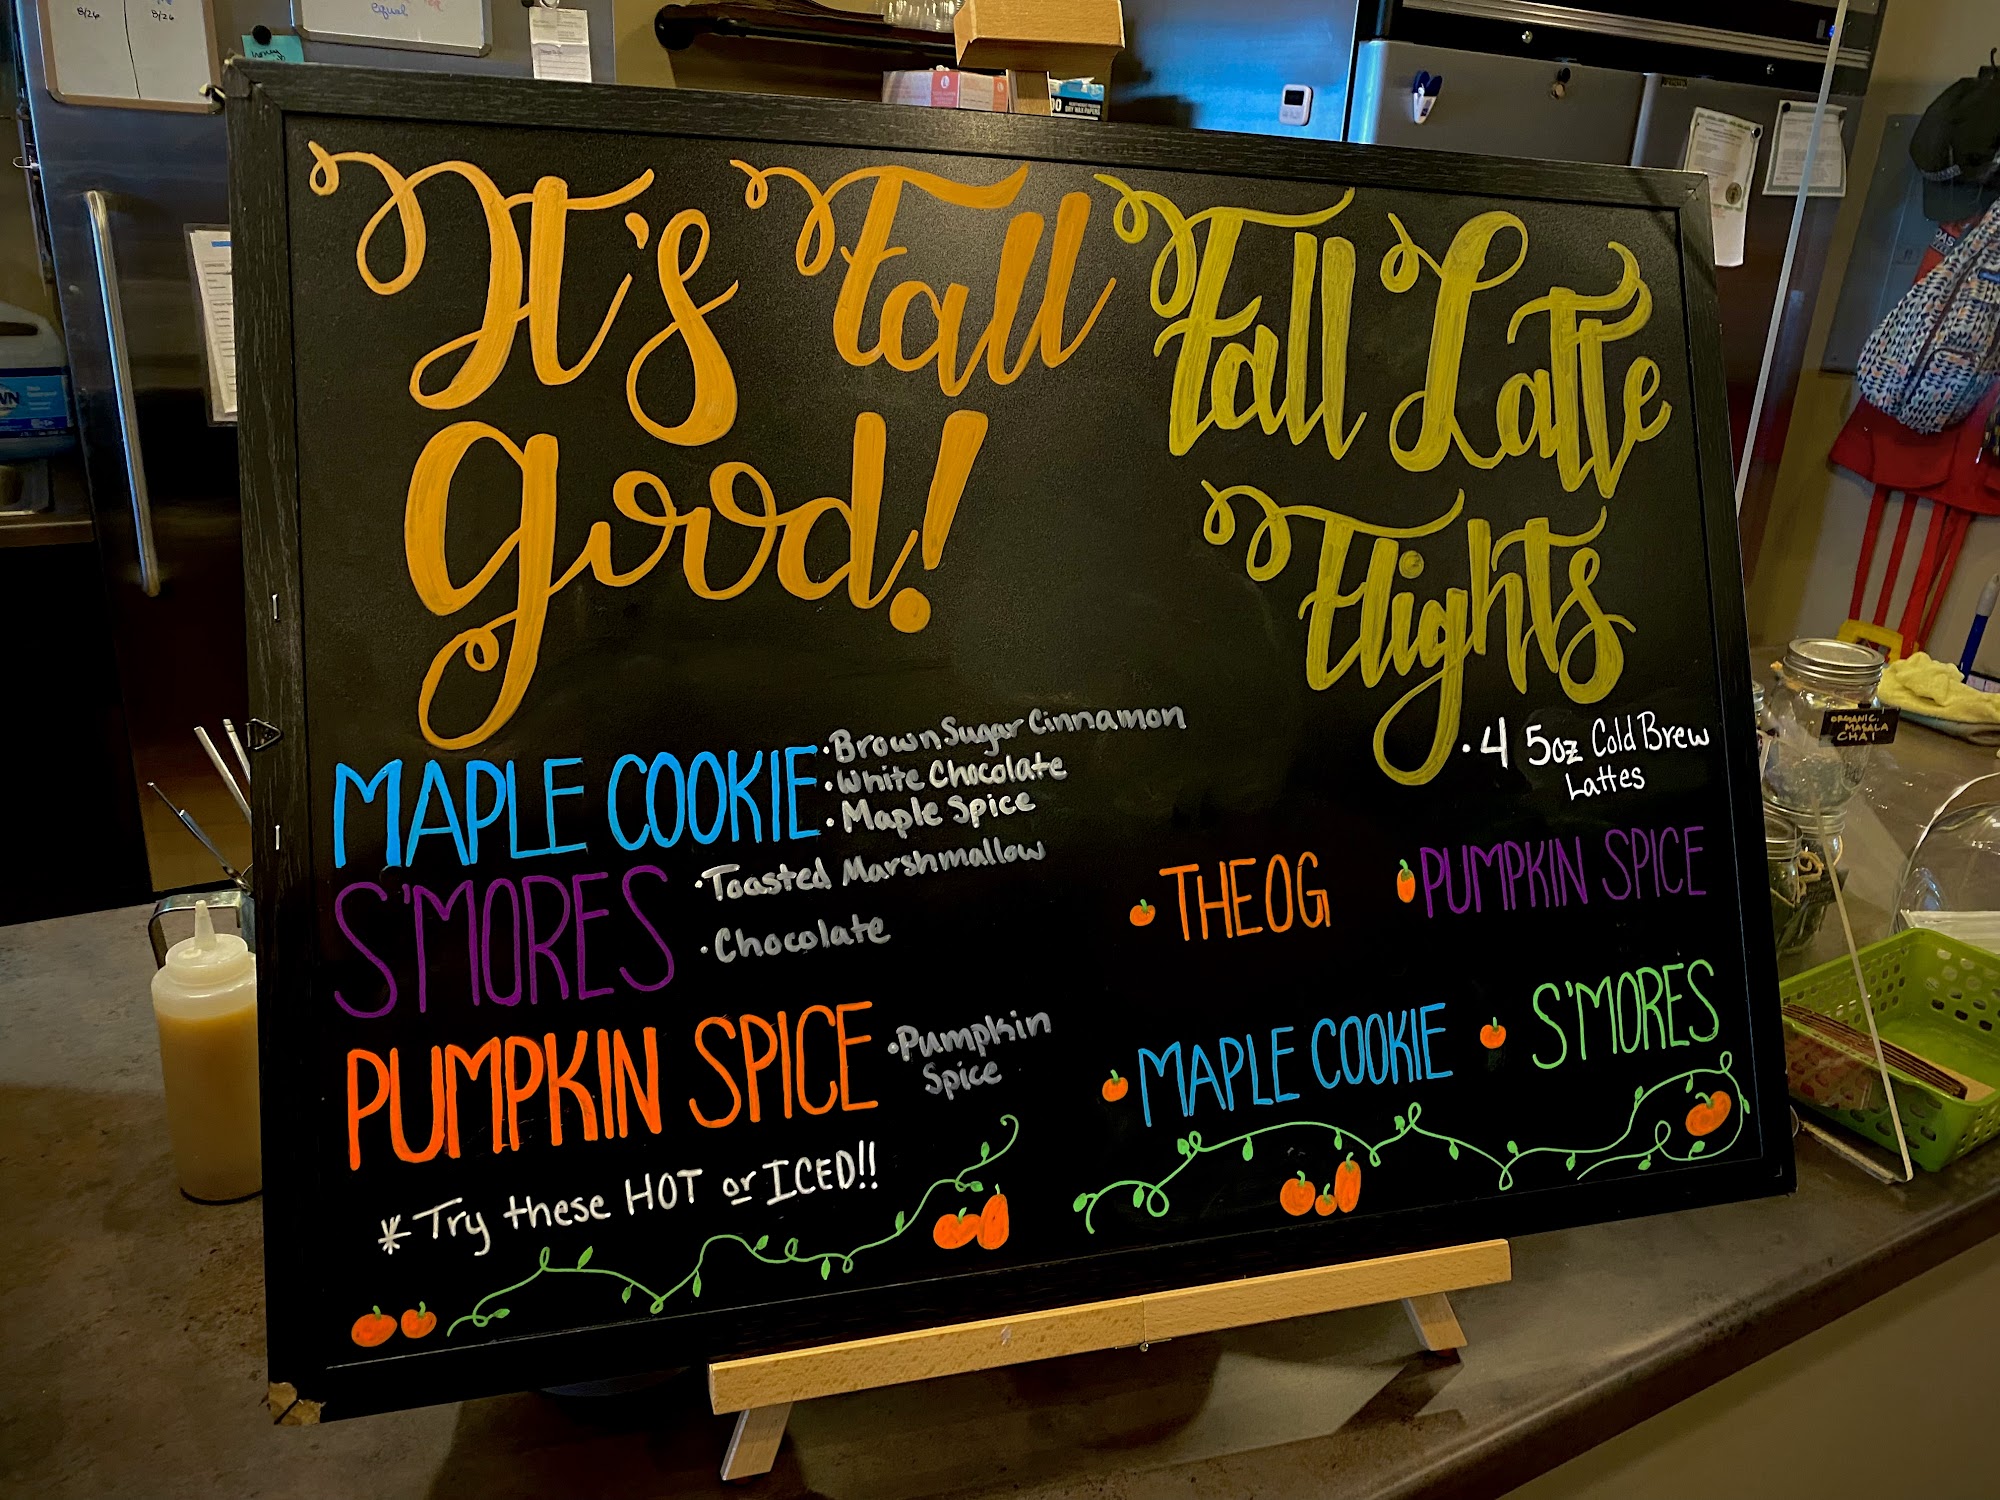 8/26
8/26
equal
honey
DRY WAX PAPERS
It's Fall
good!
MAPLE COOKIE
• Brown Sugar Cinnamon
• White Chocolate
• Maple Spice
S'MORES
• Toasted Marshmallow
• Chocolate
PUMPKIN SPICE
• Pumpkin
Spice
* Try these HOT or ICED!!
Fall Latte
Flights
• 4 5oz Cold Brew
Lattes
THE OG
PUMPKIN SPICE
MAPLE COOKIE
S'MORES
ORGANIC
MASALA
CHAI